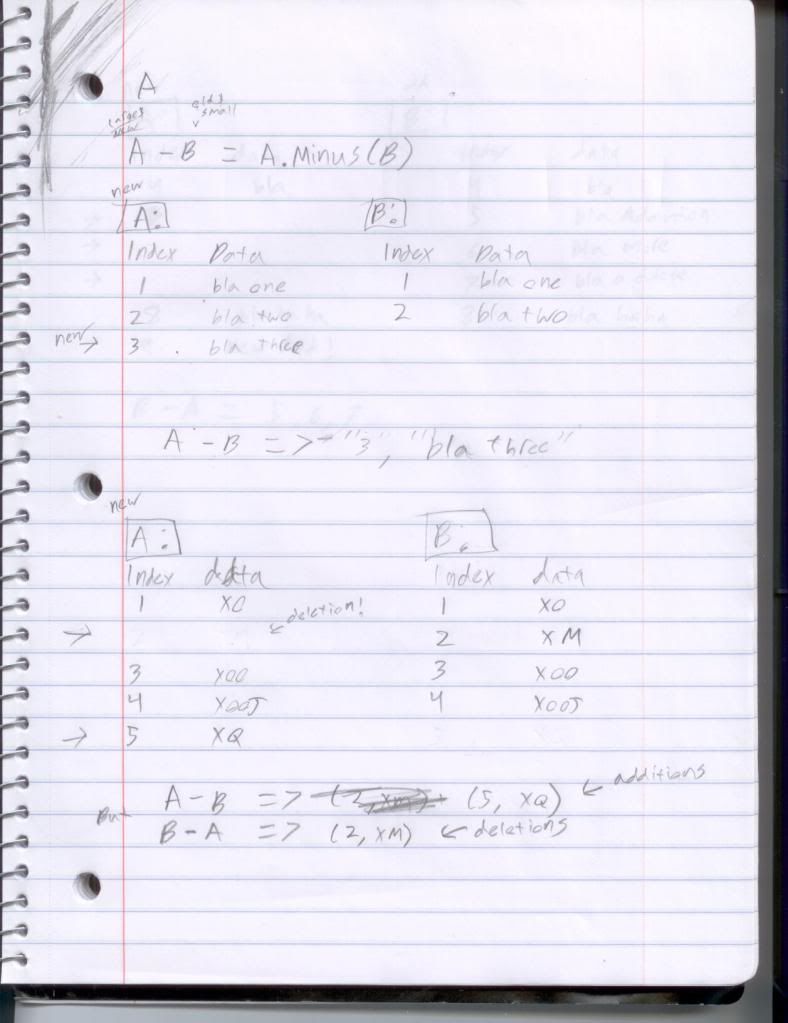 A
larger old &
new small
A - B = A.Minus(B)
new
A: B:
Index Data Index Data
1 bla one 1 bla one
2 bla two 2 bla two
new → 3 bla three
A - B => "3", "bla three"
new
A: B:
Index data Index data
1 XO 1 XO
→ ← deletion! 2 XM
3 XOO 3 XOO
4 XOOJ 4 XOOJ
→ 5 XQ
A - B => (2, XM) (5, XQ) ← additions
But B - A => (2, XM) ← deletions